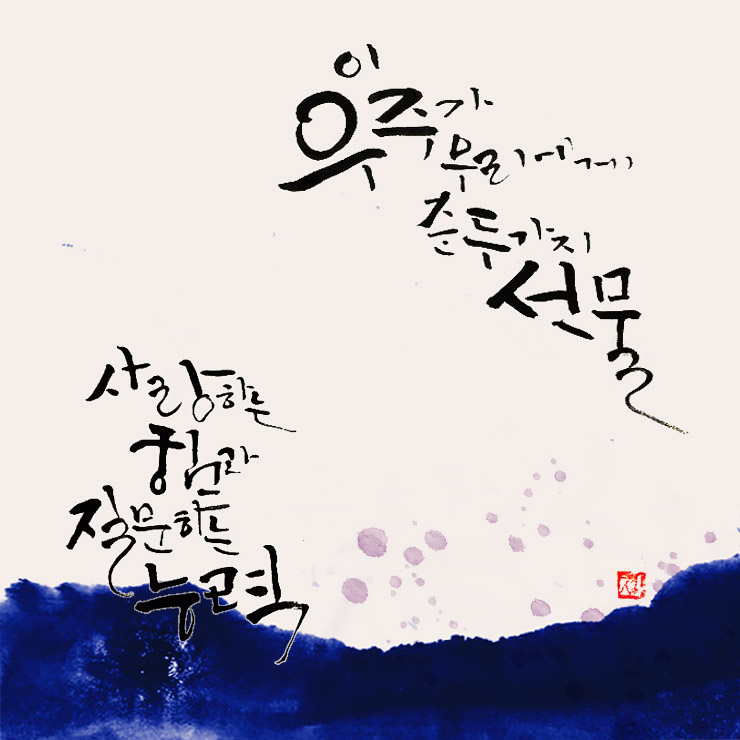 이
우주가
우리에게
준 두가지
선물
사랑하는
힘과
질문하는
능력